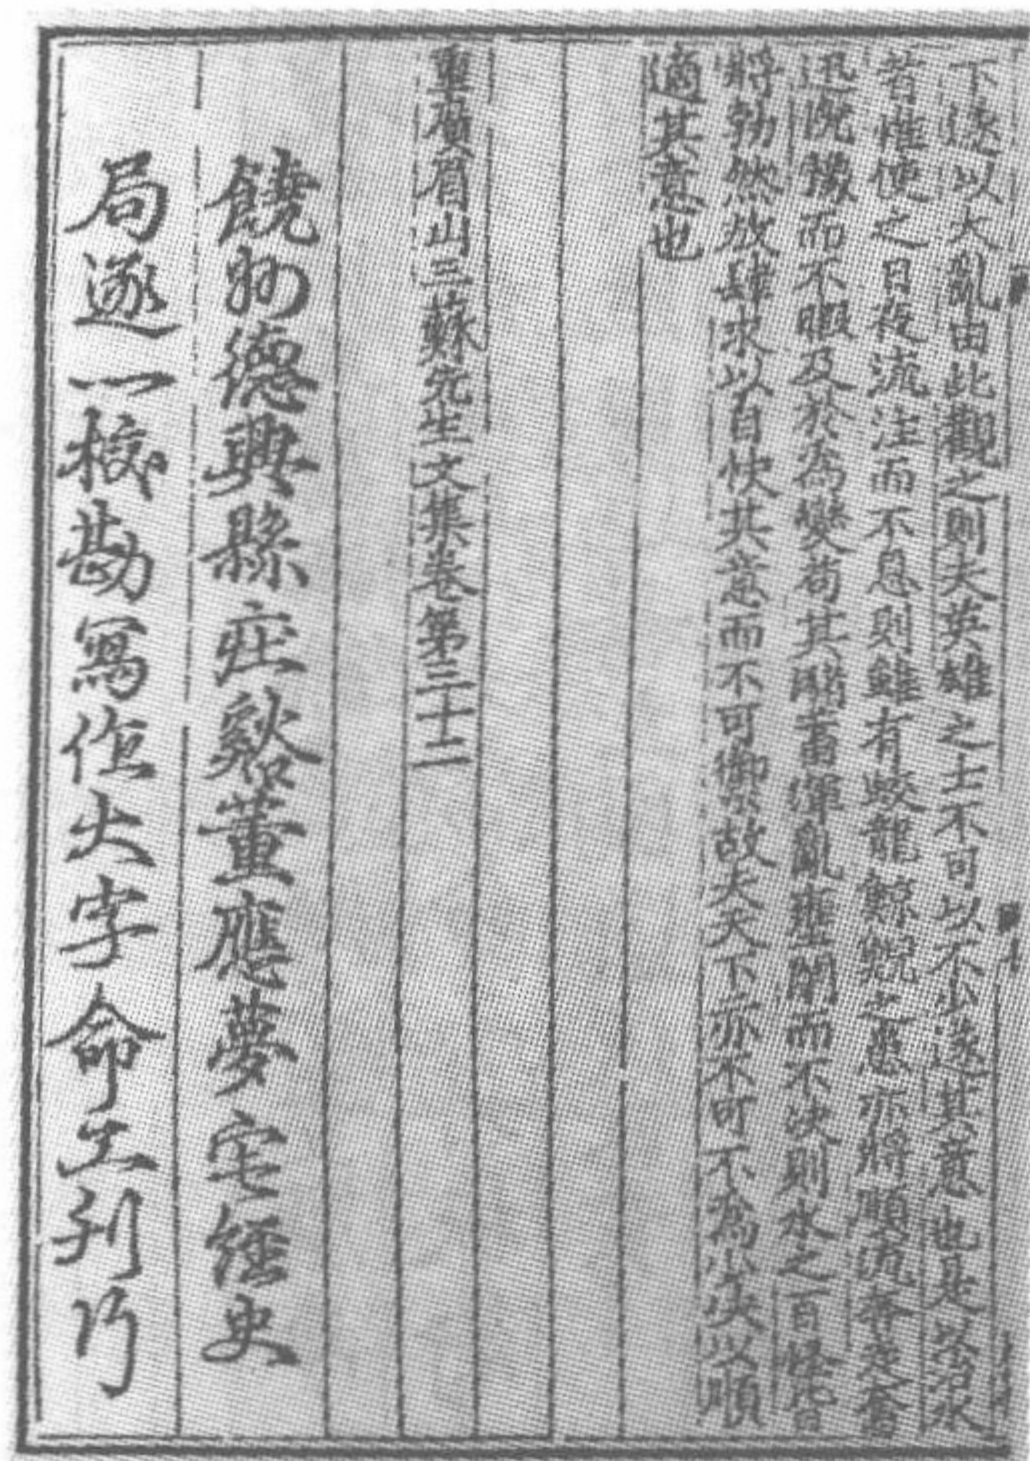 下遂以大亂由此觀之則夫英雄之士不可以不少遂其意也是以治水
者惟使之日夜流注而不息則雖有蛟龍鯨鯢之患亦將順流奔走奮
迅悅豫而不暇及於為變苟其瀦畜渾亂壅閉而不决則水之百怪皆
將勃然放肆求以自快其意而不可禦故夫天下亦不可不為少决以順
適其意也
重廣眉山三蘇先生文集卷第三十二
饒州德興縣庄谿董應夢宅經史
局逐一校勘寫作大字命工刋行